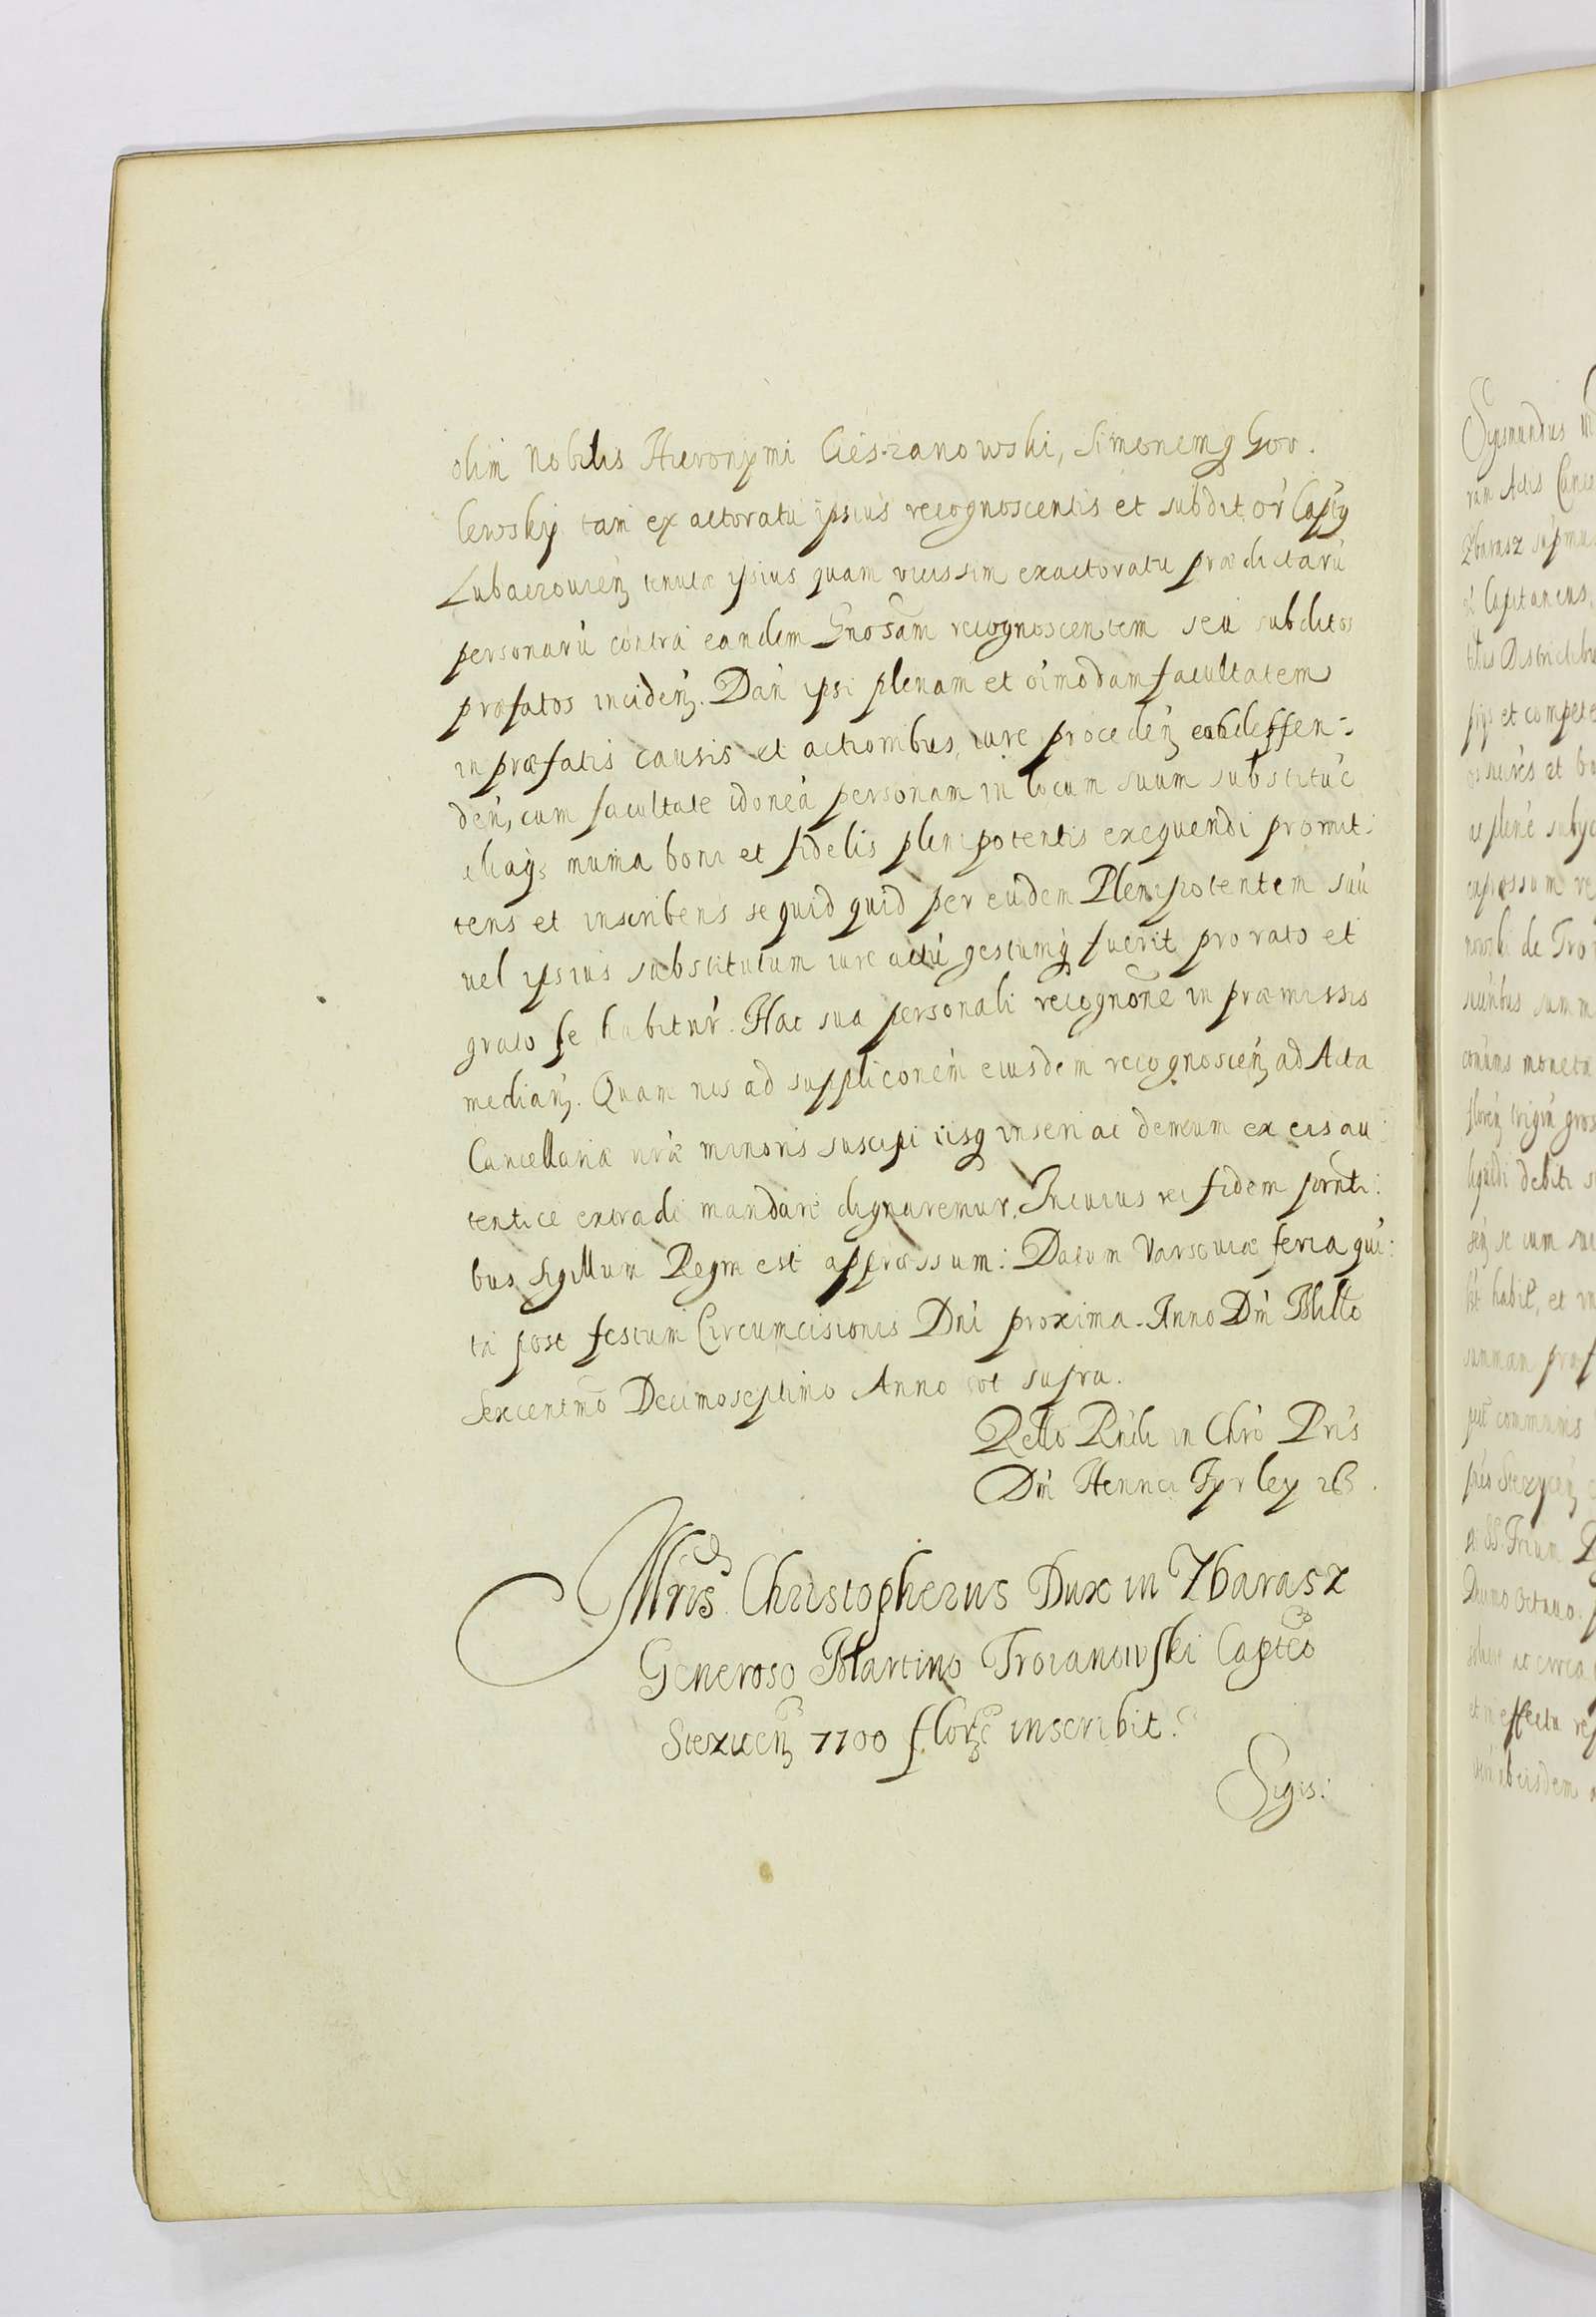 olim Nobilis Hieronymi Cieszanowski, Simonemq Gor.
lewsky tam ex actoratu ipsius recognoscentis et subdit or
Lubaczouien tenutæ ipsius quam vicissim exactoratu prædictarũ
personarũ contra eandem Gnosam recognoscentem seu subditos
præfatos inciden. Dan ipsi plenam et oimodam facultatem
in præfatis causis et actionibus, iure proceden deffen-
den, cum facultate idoneã personam in locum suum substitue
aliaqs munia boni et fidelis plenipotentis exequendi promit:
tens et inscribens se quid quid per eũdem Plenipotentem suũ
vel ipsius substitutum iure actũ gestumq fuerit pro rato et
grato se habitur. Hac sua personali recognone in præmissis
median. Quam nos ad suppliconem eiusdem recognoscen ad Acta
Cancellariæ nræ minoris suscipi iisq inseri ac demum ex eis au:
tentice extradi mandare dignaremur. In cuius rei fidem pornti:
bus Sigillum Regni est appræssum: Datum Varsouiæ feria qui:
ta post festum Circumcisionis Dni proxima. Anno Dni Millo
Sexcentmo Decimoseptimo Anno vt supra.
Rello Rndi in Chro Pris
Dni Henrici Fyrley
Illris Christopherus Dux in Zbarasz
Generoso Martino Troianowski Capteo
Stezicen 7700 flor inscribit.
Sigis:
Sigismundus
ran Actis
Zbarasz
Capitaneus,
Districtibus
et compete
et bo
plene subyc
expressum re
nowski de Tro
summ
moneta
floren trigin gros
liquidi debiti
se cum suc
habit, et in
summam præf
communis
Stezycen
SS. Trium
Decimo Octauo.
ac circa
effectu
ab eisdem